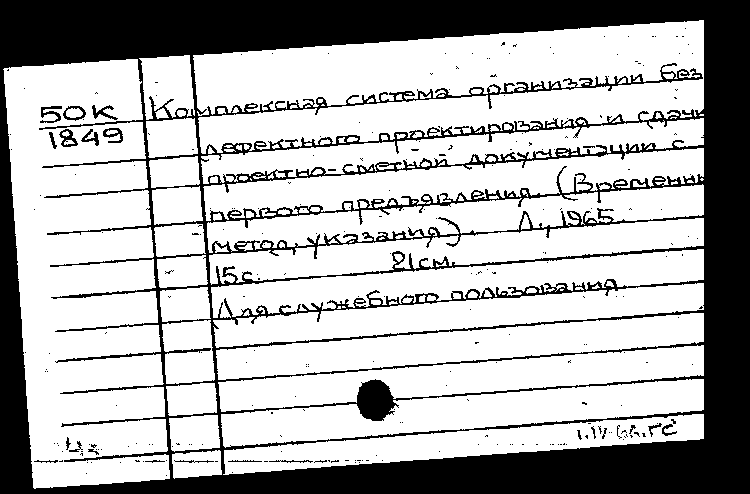 50К Комплексная система организации без
1849 дефектного проектирования и сдачи
проектно-сметной документации с
первого предъявления. (Временны
метод, указания). Л., 1965.
15с. 21см.
Для служебного пользования.